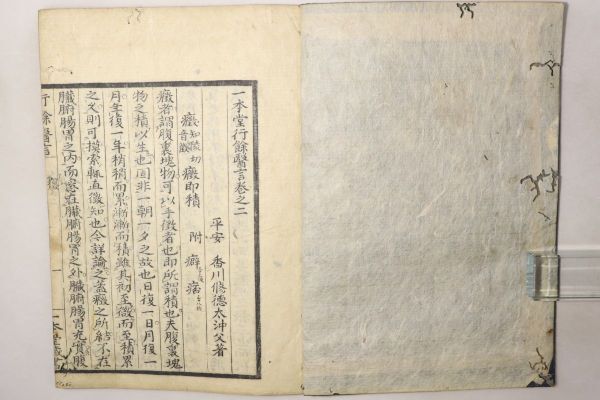 一本堂行餘醫言卷之二
平安 香川修德太沖父著
癥 知陵切 音徵 癥即積 附 癖 痞
癥者謂腹裏塊物可以手徵者也即所謂積也夫腹裏塊
物之積以生也固非一朝一夕之故也日復一日月復一
月年復一年稍稍而累漸漸而積雖其初至微而至積累
之久則可摸索輒直徵知也今詳論之蓋癥之所結不在
臟腑腸胃之內而必在臟腑腸胃之外臟腑腸胃充實腹
行餘醫言
一
一本堂藏